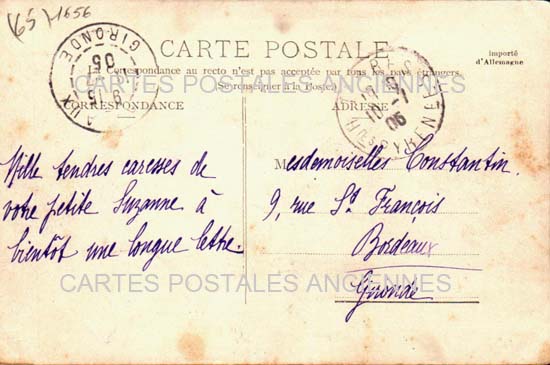 (65)-1656
CARTE POSTALE
importé
d'Allemagne
La Correspondance au recto n'est pas acceptée par tous les pays étrangers.
(Se renseigner à la Poste)
CORRESPONDANCE
ADRESSE
GIRONDE
06
Htes PYRENEES
06
Mille tendres caresses de
votre petite Suzanne à
bientôt une longue lettre.
Mesdemoiselles Constantin.
9, rue St. François
Bordeaux
Gironde
CARTES POSTALES ANCIENNES
CARTES POSTALES ANCIENNES